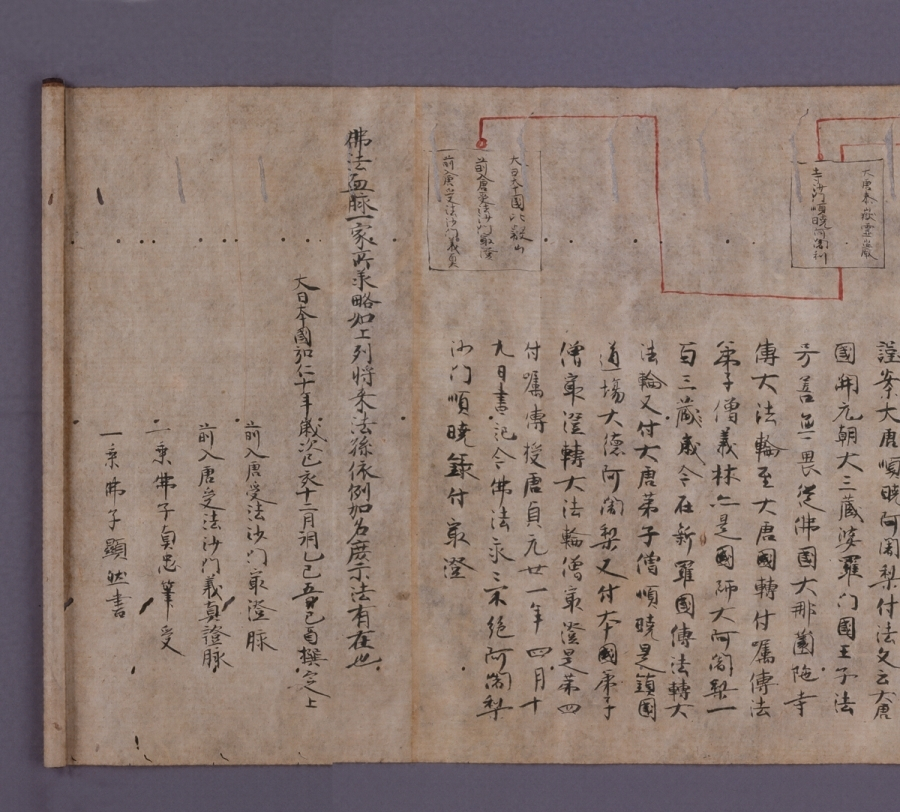 大唐泰嶽霊巖
寺沙門順曉阿闍梨
謹案大唐順曉阿闍梨付法文云大唐
國開元朝大三藏婆羅門國王子法
号善無畏從佛國大那蘭陁寺
傳大法輪至大唐國轉付囑傳法
弟子僧義林亦是國師大阿闍梨一
百三歲今在新羅國傳法轉大
法輪又付大唐弟子僧順曉是鎮國
道場大德阿闍梨又付本國弟子
僧最澄轉大法輪僧最澄是第四
付囑傳授唐貞元廿一年四月十
九日書記令佛法永永不絕阿闍梨
沙門順曉錄付最澄
大日本國比叡山
前入唐受法沙門最澄
前入唐受法沙門義真
佛法血脉一家所承略如上列將來法孫依例加名庶示法有在也
大日本國弘仁十年歲次己亥十二月朔乙巳五日己酉撰之上
前入唐受法沙門最澄脉
前入唐受法沙門義真證脉
一乘佛子貞忠筆受
一乘佛子顯然書